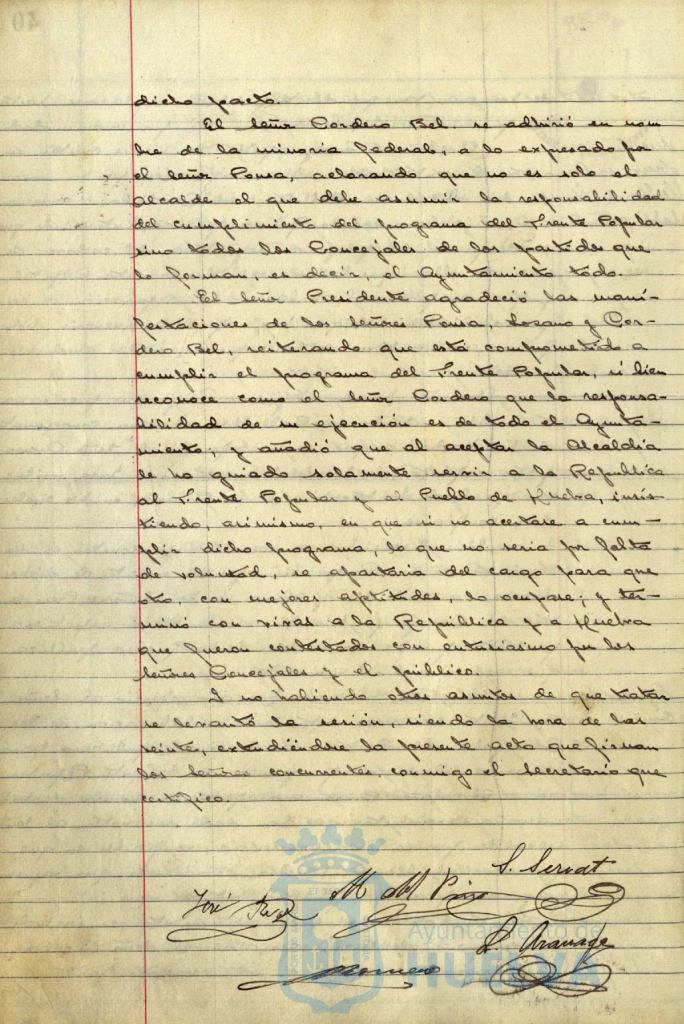 dicho pacto.
El Señor Cordero Bel. se adhirió en nom
bre de la minoria federal, a lo expresado por
el Señor Ponsa, aclarando que no es solo el
Alcalde el que debe asumir la responsabilidad
del cumplimiento del programa del Frente Popular
sino todos los Concejales de los partidos que
lo forman, es decir, el Ayuntamiento todo.
El Señor Presidente agradeció las mani-
festaciones de los Señores Ponsa, Lozano y Cor-
dero Bel, reiterando que está comprometido a
cumplir el programa del Frente Popular, si bien
reconoce como el Señor Cordero que la responsa-
bilidad de su ejecución es de todo el Ayunta-
miento; y añadió que al aceptar la Alcaldia
le ha guiado solamente servir a la Republica
al Frente Popular y al Pueblo de Huelva, insis-
tiendo, asimismo, en que si no acertase a cum-
plir dicho programa, lo que no seria por falta
de voluntad, se apartaria del cargo para que
otro, con mejores aptitudes, lo ocupase; y ter-
minó con vivas a la República y a Huelva
que fueron contestados con entusiasmo por los
Señores Concejales y el público.
Y no habiendo otros asuntos de que tratar
se levantó la sesión, siendo la hora de las
veinte, extendiéndose la presente acta que firman
los Señores concurrentes, conmigo el Secretario que
certifico.
S. Servat
José
M del Pino
Ayuntamiento de
HUELVA
40